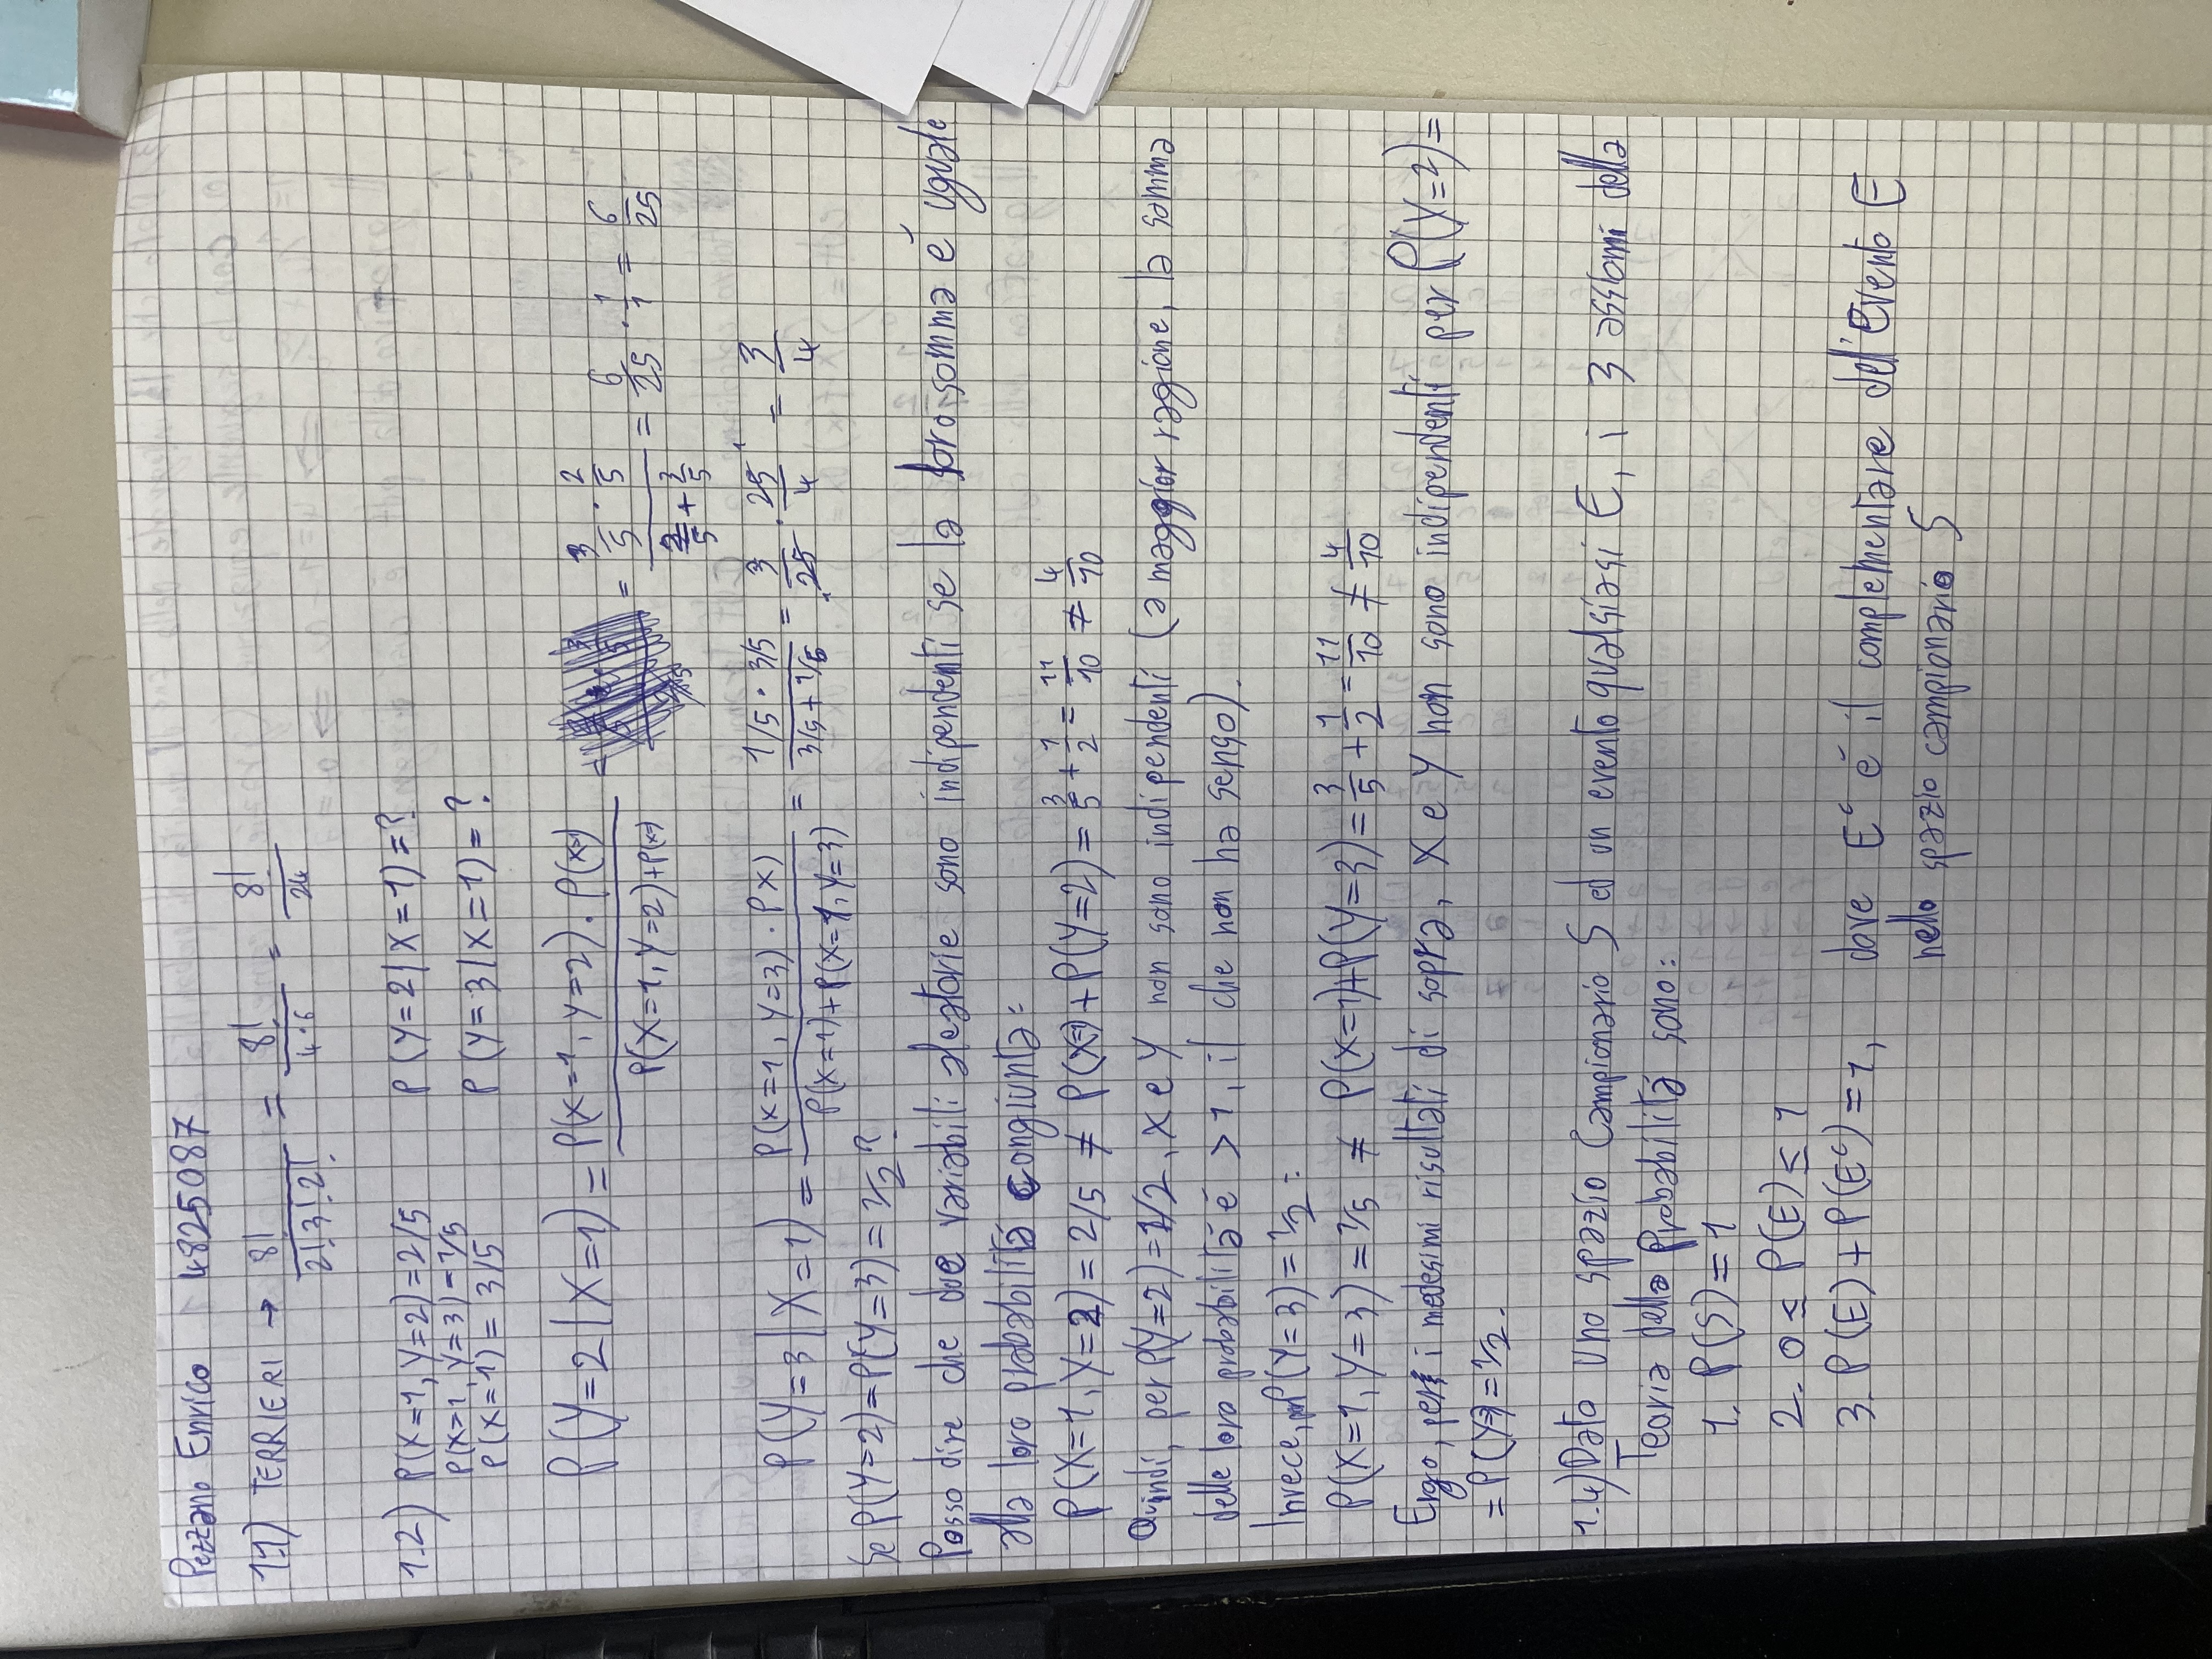 Pezzano Enrico 4825087
1.1) TERRIERI → 8!/(2!3!2!) = 8!/(4·6) = 8!/24
1.2) P(X=1, Y=2)=2/5 P(Y=2|X=1)=?
P(X=1, Y=3)=1/5
P(X=1)= 3/5 P(Y=3|X=1)=?
P(Y=2|X=1) = (P(X=1, Y=2)·P(X=1))/(P(X=1, Y=2)+P(X=1)) = = (3/5 · 2/5)/(2/5 + 3/5) = 6/25 · 1/1 = 6/25
P(Y=3|X=1) = (P(X=1, Y=3)·P(X))/(P(X=1)+P(X=1, Y=3)) = (1/5 · 3/5)/(3/5+1/5) = 3/25 · 25/4 = 3/4
Se P(Y=2)=P(Y=3)=1/2?
Posso dire che due variabili aleatorie sono indipendenti se la loro somma é uguale
alla loro probabilitá congiunta:
P(X=1, Y=2)=2/5 ≠ P(X=1)+P(Y=2)= 3/5 + 1/2 = 11/10 ≠ 4/10
Quindi, per P(Y=2)=1/2, X e Y non sono indipendenti (a maggior ragione, la somma
delle loro probabilitá é >1, il che non ha senso).
Invece, per P(Y=3)=1/2:
P(X=1, Y=3)=1/5 ≠ P(X=1)+P(Y=3)= 3/5 + 1/2 = 11/10 ≠ 4/10
Ergo, per i medesimi risultati di sopra, X e Y non sono indipendenti per P(Y=2)=
=P(Y=3)=1/2.
1.4) Dato uno spazio Campionario S ed un evento qualsiasi E, i 3 assiomi della
Teoria della Probabilitá sono:
1. P(S)=1
2. 0 ≤ P(E) ≤ 1
3. P(E)+P(Eᶜ)=1, dove Eᶜ é il complementare dell'evento E
nello spazio campionario S